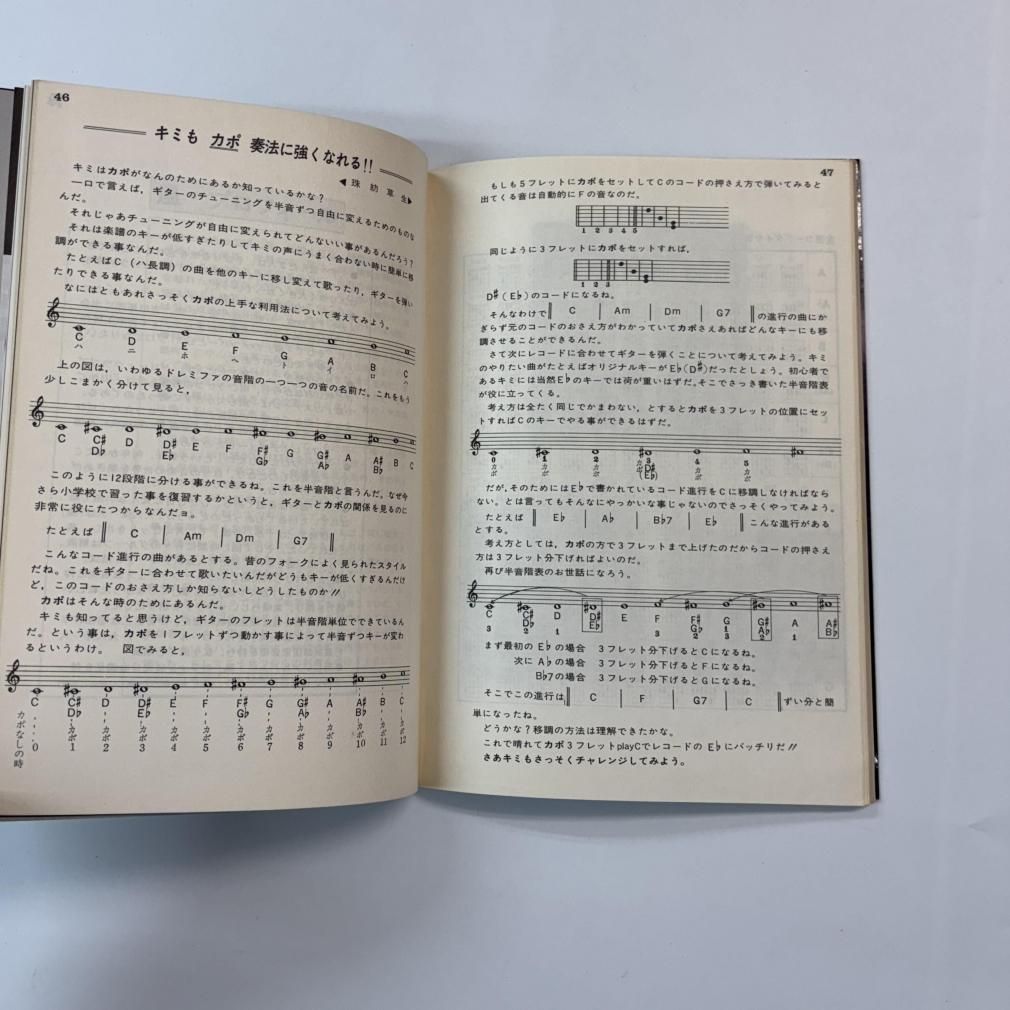 46
キミも カポ 奏法に強くなれる!!
キミはカポがなんのためにあるか知っているかな？
一口で言えば，ギターのチューニングを半音ずつ自由に変えるためのものな
んだ。
それじゃあチューニングが自由に変えられてどんないい事があるんだろう？
それは楽譜のキーが低すぎたりしてキミの声にうまく合わない時に簡単に移
調ができる事なんだ。
たとえばC（ハ長調）の曲を他のキーに移し変えて歌ったり，ギターを弾い
たりできる事なんだ。
なにはともあれさっそくカポの上手な利用法について考えてみよう。
C D E F G A B C
ハ ニ ホ ヘ ト イ ロ ハ
上の図は，いわゆるドレミファの音階の一つ一つの音の名前だ。これをもう
少しこまかく分けて見ると，
C C♯ D D♯ E F F♯ G G♯ A A♯ B C
D♭ E♭ G♭ A♭ B♭
このように12段階に分ける事ができるね。これを半音階と言うんだ。なぜ今
さら小学校で習った事を復習するかというと，ギターとカポの関係を見るのに
非常に役にたつからなんだョ。
たとえば ‖ C | Am | Dm | G7 ‖
こんなコード進行の曲があるとする。昔のフォークによく見られたスタイル
だね。これをギターに合わせて歌いたいんだがどうもキーが低くすぎるんだけ
ど，このコードのおさえ方しか知らないしどうしたものか!!
カポはそんな時のためにあるんだ。
キミも知ってると思うけど，ギターのフレットは半音階単位でできているん
だ。という事は，カポを1フレットずつ動かす事によって半音ずつキーが変わ
るというわけ。 図でみると，
C C♯ D D♯ E F F♯ G G♯ A A♯ B C
D♭ E♭ G♭ A♭ B♭
カポなしの時 カポ カポ カポ カポ カポ カポ カポ カポ カポ カポ カポ カポ
0 1 2 3 4 5 6 7 8 9 10 11 12
47
もしも5フレットにカポをセットしてCのコードの押さえ方で弾いてみると
出てくる音は自動的にFの音なのだ。
1 2 3 4 5
同じように3フレットにカポをセットすれば，
1 2 3
D♯（E♭）のコードになるね。
そんなわけで ‖ C | Am | Dm | G7 ‖ の進行の曲にか
ぎらず元のコードのおさえ方がわかっていてカポさえあればどんなキーにも移
調させることができるんだ。
さて次にレコードに合わせてギターを弾くことについて考えてみよう。キミ
のやりたい曲がたとえばオリジナルキーがE♭（D♯）だったとしよう。初心者で
あるキミには当然E♭のキーでは荷が重いはずだ。そこでさっき書いた半音階表
が役に立ってくる。
考え方は全たく同じでかまわない，とするとカポを3フレットの位置にセッ
トすればCのキーでやる事ができるはずだ。
0 1 2 3 4 5
カポ カポ カポ カポ カポ カポ
D♯
(E♭)
だが，そのためにはE♭で書かれているコード進行をCに移調しなければなら
ない。とは言ってもそんなにやっかいな事じゃないのでさっそくやってみよう。
たとえば ‖ E♭ | A♭ | B♭7 | E♭ ‖ こんな進行がある
とする。
考え方としては，カポの方で3フレットまで上げたのだからコードの押さえ
方は3フレット分下げればよいのだ。
再び半音階表のお世話になろう。
C C♯ D D♯ E F F♯ G G♯ A A♯
D♭ E♭ G♭ A♭ B♭
3 2 1 3 2 1 3 2 1
まず最初の E♭の場合 3フレット分下げるとCになるね。
次に A♭の場合 3フレット分下げるとFになるね。
B♭7の場合 3フレット分下げるとGになるね。
そこでこの進行は ‖ C | F | G7 | C ‖ ずい分と簡
単になったね。
どうかな？移調の方法は理解できたかな。
これで晴れてカポ3フレットplayCでレコードの E♭にバッチリだ!!
さあキミもさっそくチャレンジしてみよう。